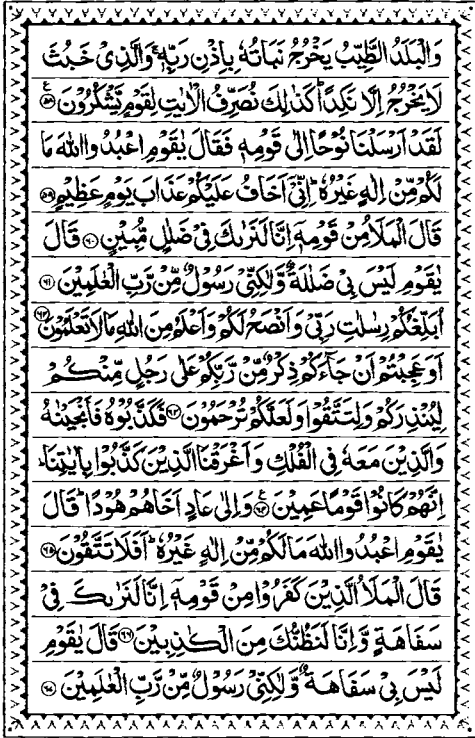 وَالْبَلَدُ الطَّيِّبُ يَخْرُجُ نَبَاتُهٗ بِاِذْنِ رَبِّهٖ ۚ وَالَّذِىْ خَبُثَ
لَا يَخْرُجُ اِلَّا نَكِدًا ؕ كَذٰلِكَ نُصَرِّفُ الْاٰيٰتِ لِقَوْمٍ يَّشْكُرُوْنَ ﴿۵۸﴾ ع
لَقَدْ اَرْسَلْنَا نُوْحًا اِلٰى قَوْمِهٖ فَقَالَ يٰقَوْمِ اعْبُدُوا اللّٰهَ مَا
لَكُمْ مِّنْ اِلٰهٍ غَيْرُهٗ ؕ اِنِّىْۤ اَخَافُ عَلَيْكُمْ عَذَابَ يَوْمٍ عَظِيْمٍ ﴿۵۹﴾
قَالَ الْمَلَاُ مِنْ قَوْمِهٖۤ اِنَّا لَنَرٰىكَ فِىْ ضَلٰلٍ مُّبِيْنٍ ﴿۶۰﴾ قَالَ
يٰقَوْمِ لَيْسَ بِىْ ضَلٰلَةٌ وَّلٰكِنِّىْ رَسُوْلٌ مِّنْ رَّبِّ الْعٰلَمِيْنَ ﴿۶۱﴾
اُبَلِّغُكُمْ رِسٰلٰتِ رَبِّىْ وَاَنْصَحُ لَكُمْ وَاَعْلَمُ مِنَ اللّٰهِ مَا لَا تَعْلَمُوْنَ ﴿۶۲﴾
اَوَعَجِبْتُمْ اَنْ جَآءَكُمْ ذِكْرٌ مِّنْ رَّبِّكُمْ عَلٰى رَجُلٍ مِّنْكُمْ
لِيُنْذِرَكُمْ وَلِتَتَّقُوْا وَلَعَلَّكُمْ تُرْحَمُوْنَ ﴿۶۳﴾ فَكَذَّبُوْهُ فَاَنْجَيْنٰهُ
وَالَّذِيْنَ مَعَهٗ فِى الْفُلْكِ وَاَغْرَقْنَا الَّذِيْنَ كَذَّبُوْا بِاٰيٰتِنَا ؕ
اِنَّهُمْ كَانُوْا قَوْمًا عَمِيْنَ ﴿۶۴﴾ ع وَاِلٰى عَادٍ اَخَاهُمْ هُوْدًا ؕ قَالَ
يٰقَوْمِ اعْبُدُوا اللّٰهَ مَا لَكُمْ مِّنْ اِلٰهٍ غَيْرُهٗ ؕ اَفَلَا تَتَّقُوْنَ ﴿۶۵﴾
قَالَ الْمَلَاُ الَّذِيْنَ كَفَرُوْا مِنْ قَوْمِهٖۤ اِنَّا لَنَرٰىكَ فِىْ
سَفَاهَةٍ وَّاِنَّا لَنَظُنُّكَ مِنَ الْكٰذِبِيْنَ ﴿۶۶﴾ قَالَ يٰقَوْمِ
لَيْسَ بِىْ سَفَاهَةٌ وَّلٰكِنِّىْ رَسُوْلٌ مِّنْ رَّبِّ الْعٰلَمِيْنَ ﴿۶۷﴾